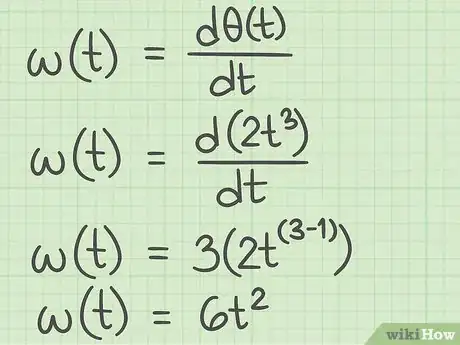 ω(t) = dθ(t)/dt
ω(t) = d(2t³)/dt
ω(t) = 3(2t⁽³⁻¹⁾)
ω(t) = 6t²
wikiHow